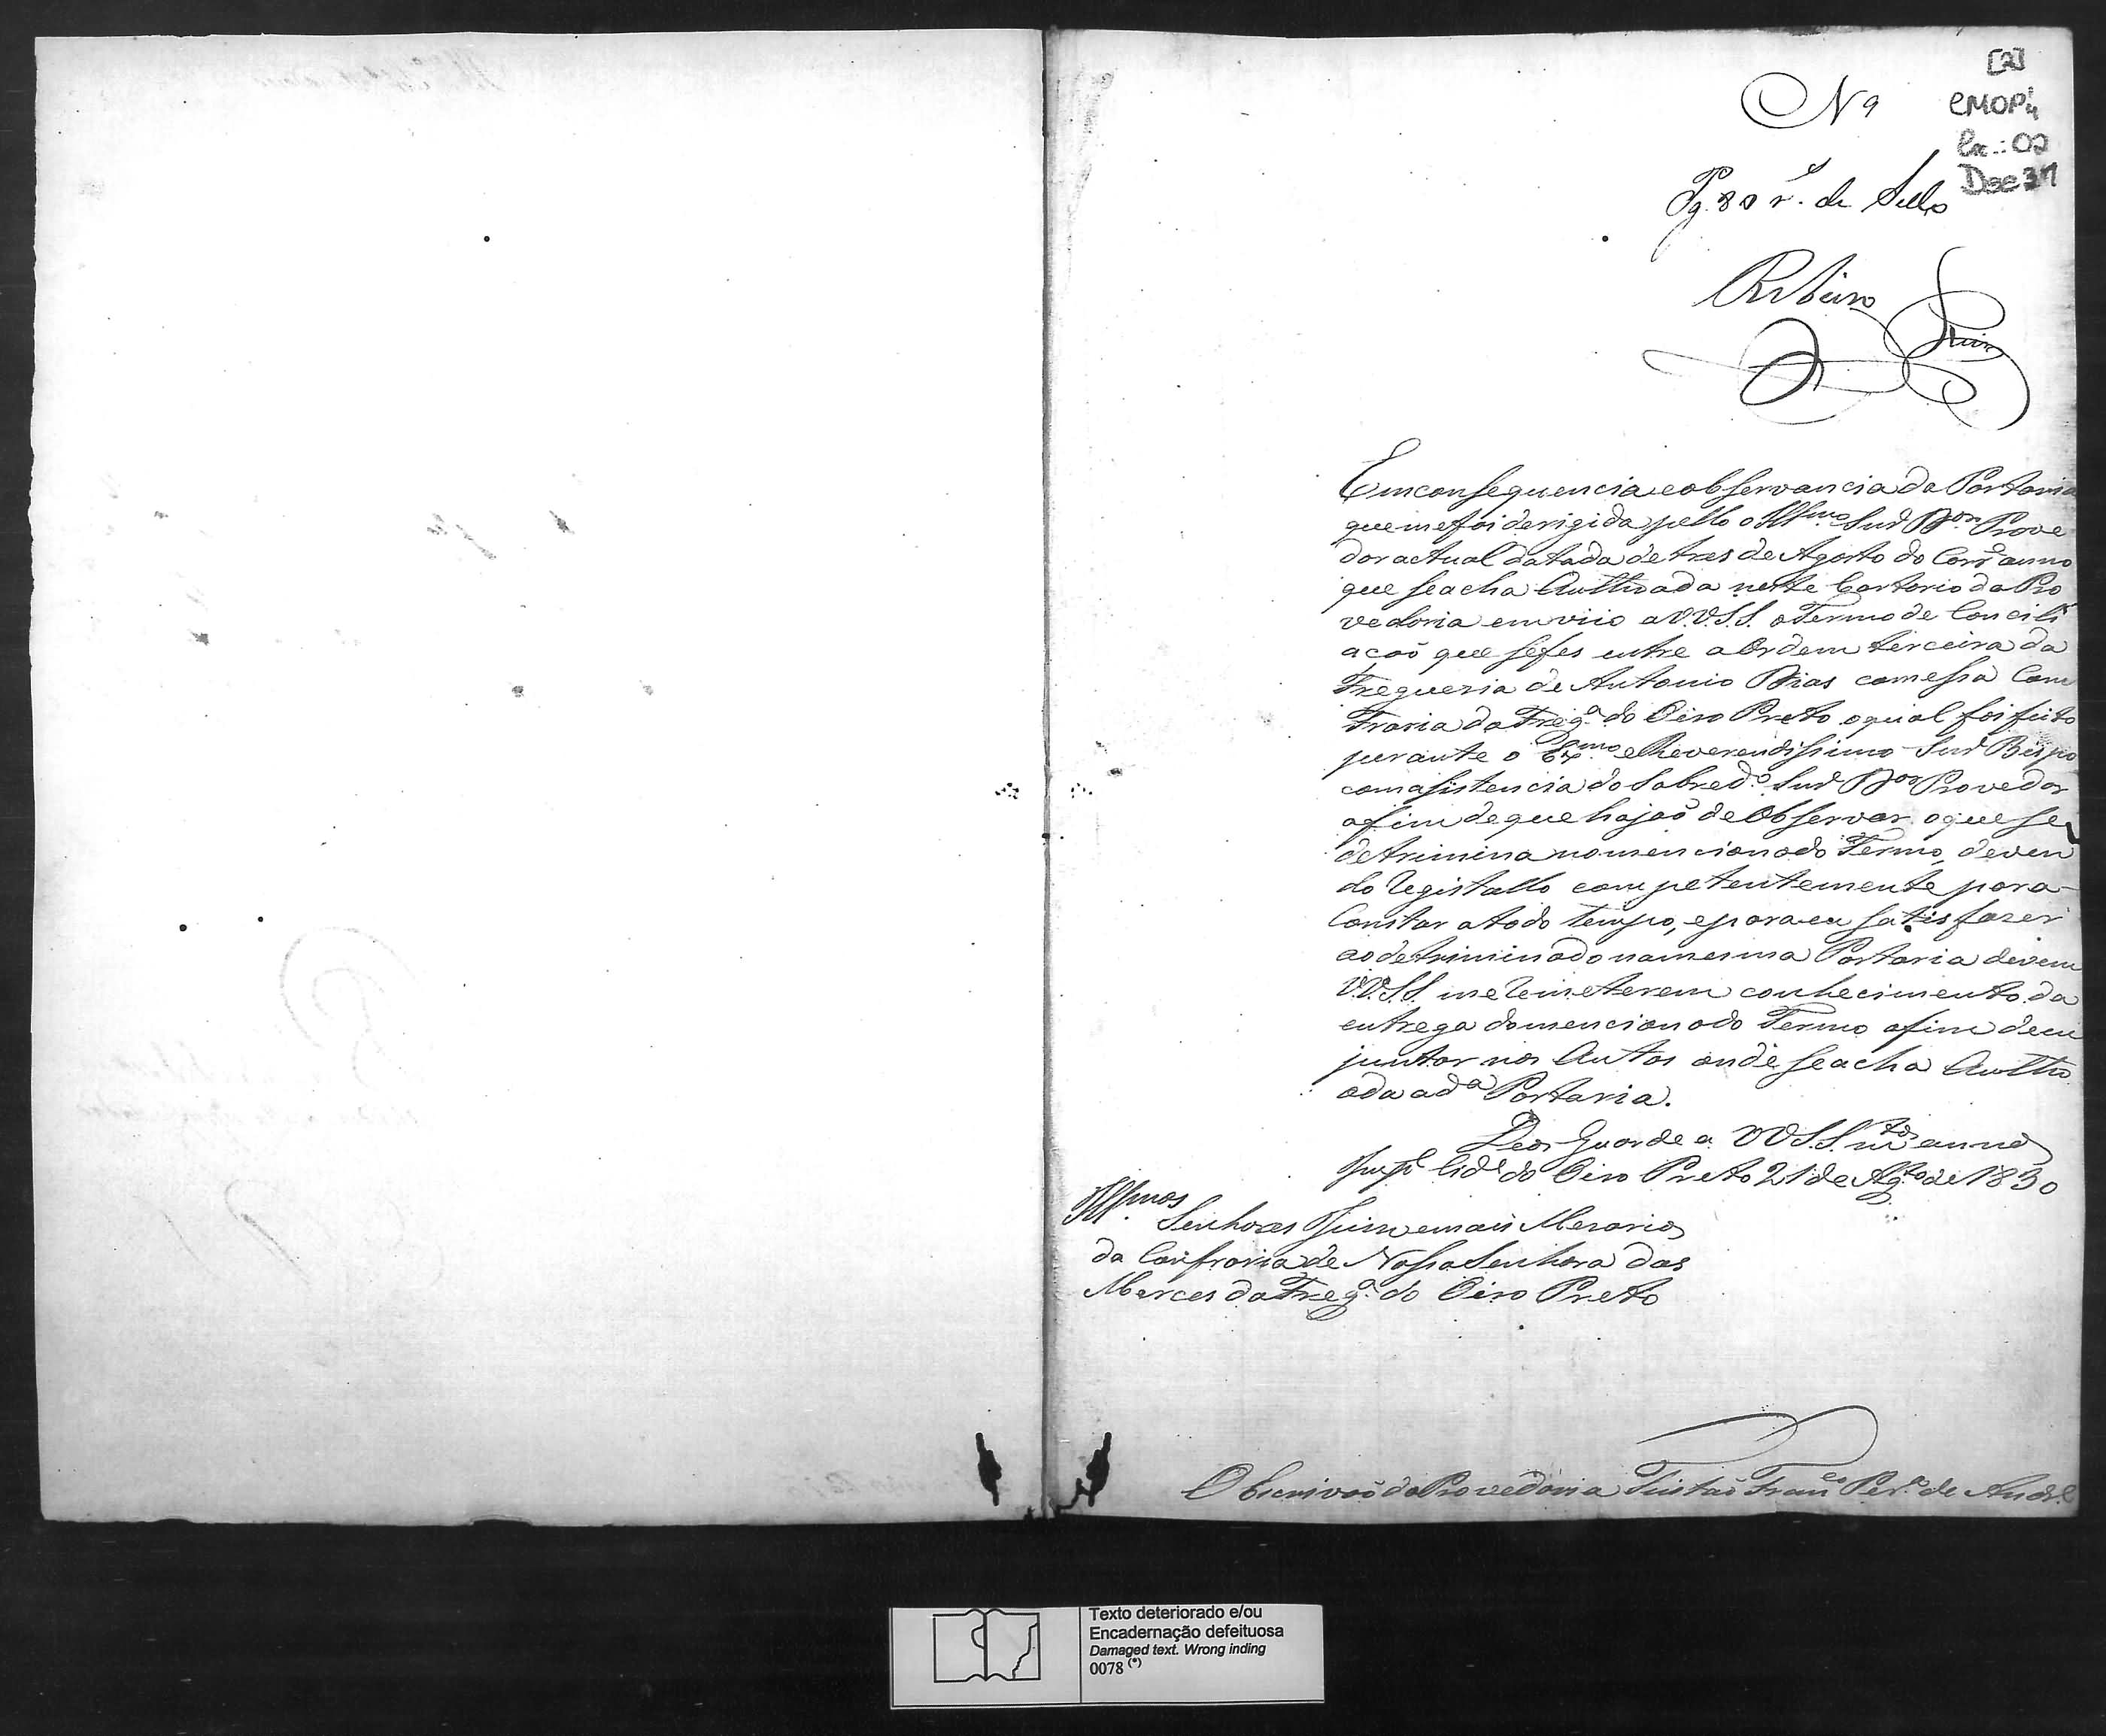 [2]
Nº 9
CMOP/4
Cx.: 02
Doc 37
Pg 80 rˢ. de Sello
Ribeiro
Em consequencia e observancia da Portaria
que me foi derigida pello o Illᵐᵒ Snr̃ Dºʳ Prove
dor actual datada de tres de Agosto do Corrᵉ anno
que se acha Authuada neste Cartorio da Pro
vedoria emviio a V.V.S.S. o Termo de Concili
acaõ que se fes entre a Ordem terceira da
Freguezia de Antonio Dias com essa Com
fraria da Fregª do Oiro Preto o qual foi feito
perante o Exᵐᵒ e Reverendissimo Snr̃ Bispo
com asistencia do sobredº Snr̃ Dºʳ Provedor
afim de que hajaõ de Observar o que se
detrimina no mencionado Termo, deven
do Registallo competentemente para
Constar a todo tempo, e para eu satisfazer
ao detriminado na mesma Portaria devem
V.V.S.S. me Remeterem conhecimento da
entrega do mencionado Termo afim de eu
juntar nos Autos onde se acha Authu
ada a dª Portaria.
Deos Guarde a VVS.S. mᵗᵒˢ annos
Impˡ Cidᵉ do Oiro Preto 21 de Agᵗᵒ de 1830
Illᵐᵒˢ
Senhores Juiz e mais Mezarios
da Confraria de Nossa Senhora das
Merces da Fregª do Oiro Preto
O Escrivaõ da Provedoria Tristaõ Franᶜᵒ Perª de Andrᵉ
Texto deteriorado e/ou
Encadernação defeituosa
Damaged text. Wrong inding
0078 (*)